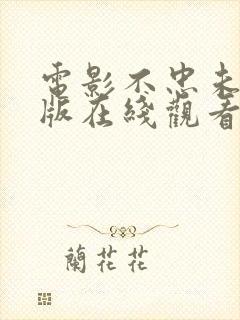 電影不忠未
版在綫觀看
蘭花花